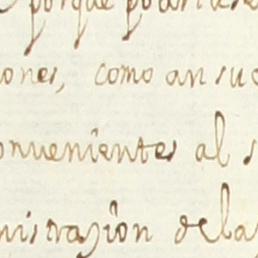 porque podri
iones, como an suc
onuenientes al s
nistraçión de la